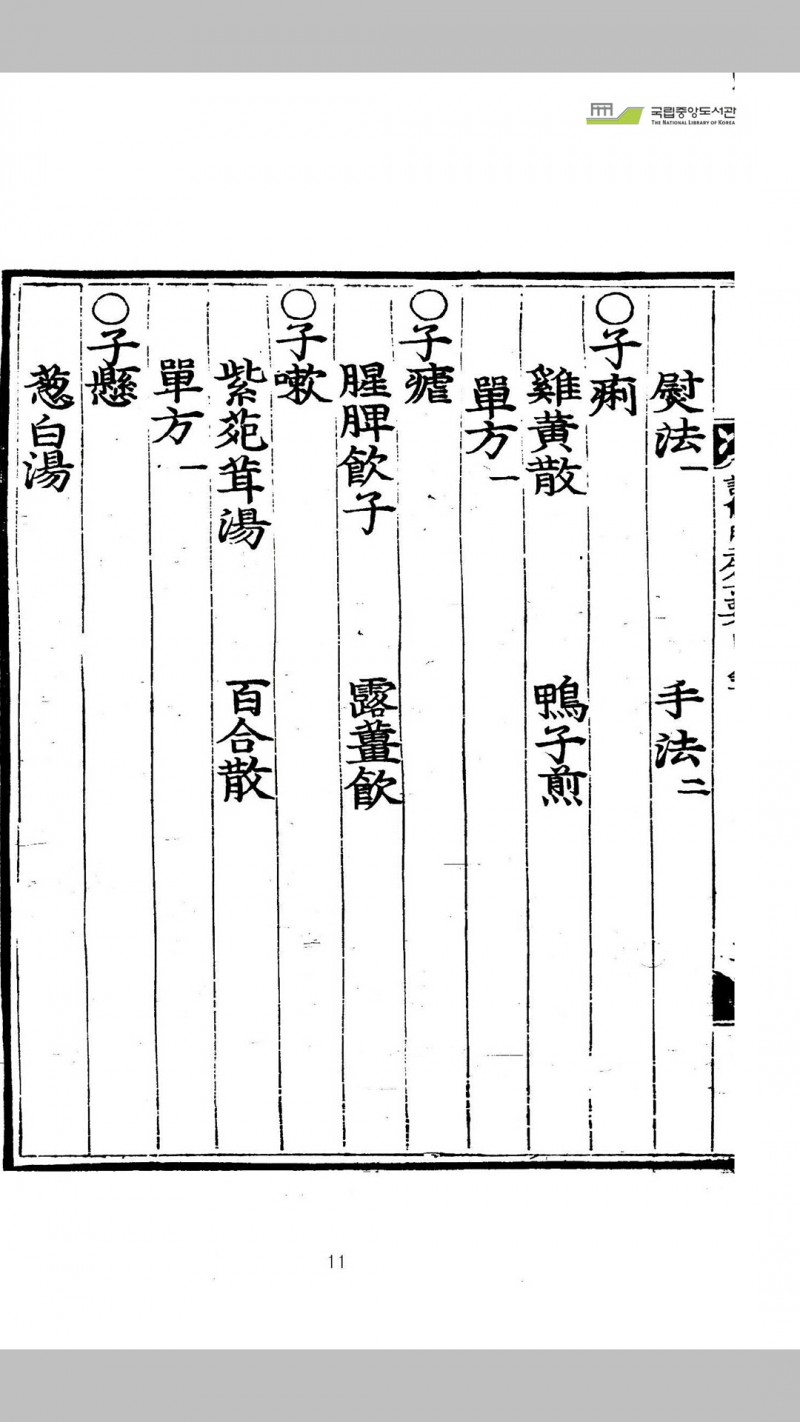 국립중앙도서관
THE NATIONAL LIBRARY OF KOREA
熨法一 手法二
○子痢
雞黃散 鴨子煎
單方一
○子瘧
醒脾飮子 露薑飮
○子嗽
紫菀茸湯 百合散
單方一
○子懸
葱白湯
11